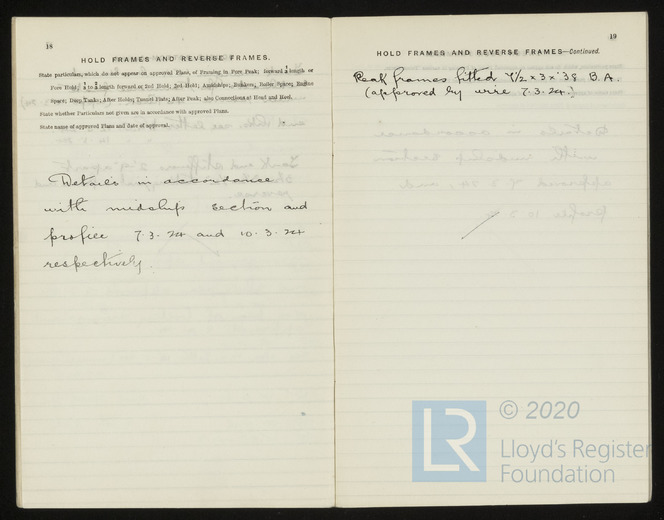 18
HOLD FRAMES AND REVERSE FRAMES.
State particulars, which do not appear on approval Plans, of Framing in Fore Peak; Forward length or
Fore Hold; length forward or 2nd Hold; 3rd Hold; Amidships; Bunkers; Boiler Space; Engine
Space; Deep Tanks; After Holds; Tunnel Flats; After Peak; also Connections at Head and Heel.
State whether Particulars not given are in accordance with approved Plans.
State name of approved Plans and date of approval.
Details in accordance
with midship section and
profile 7.3.24 and 10.3.24
respectively.
19
HOLD FRAMES AND REVERSE FRAMES—Continued.
Peak frames fitted 7 1/2 x 3 x .38 B.A.
(approved by wire 7.3.24.)
LR
© 2020
Lloyd's Register
Foundation